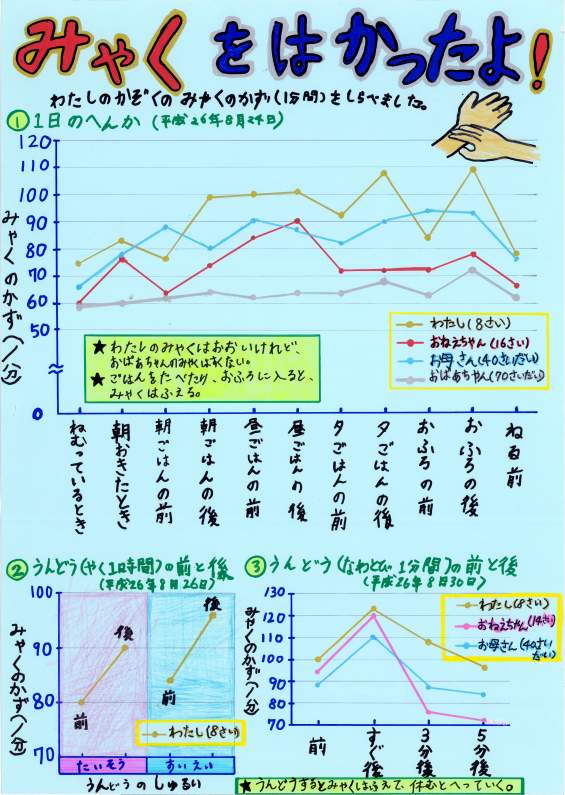 みゃくをはかったよ!
わたしのかぞくのみゃくのかず(1分間)をしらべました。
①1日のへんか(平成26年8月24日)
みゃくのかず(/分)
120
110
100
90
80
70
60
50
0
わたし(8さい)
おねえちゃん(16さい)
お母さん(40さいだい)
おばあちゃん(70さいだい)
★わたしのみゃくはおおいけれど、
おばあちゃんのみゃくは少くない。
★ごはんをたべたり、おふろに入ると、
みゃくはふえる。
ねむっているとき
朝おきたとき
朝ごはんの前
朝ごはんの後
昼ごはんの前
昼ごはんの後
夕ごはんの前
夕ごはんの後
おふろの前
おふろの後
ねる前
②うんどう(やく1時間)の前と後
(平成26年8月26日)
みゃくのかず(/分)
100
90
80
70
前
後
前
後
わたし(8さい)
たいそう
すいえい
うんどうのしゅるい
③うんどう(なわとび1分間)の前と後
(平成26年8月30日)
みゃくのかず(/分)
130
120
110
100
90
80
70
わたし(8さい)
おねえちゃん(14さい)
お母さん(40さいだい)
前
すぐ後
3分後
5分後
★うんどうするとみゃくはふえて、休むとへっていく。